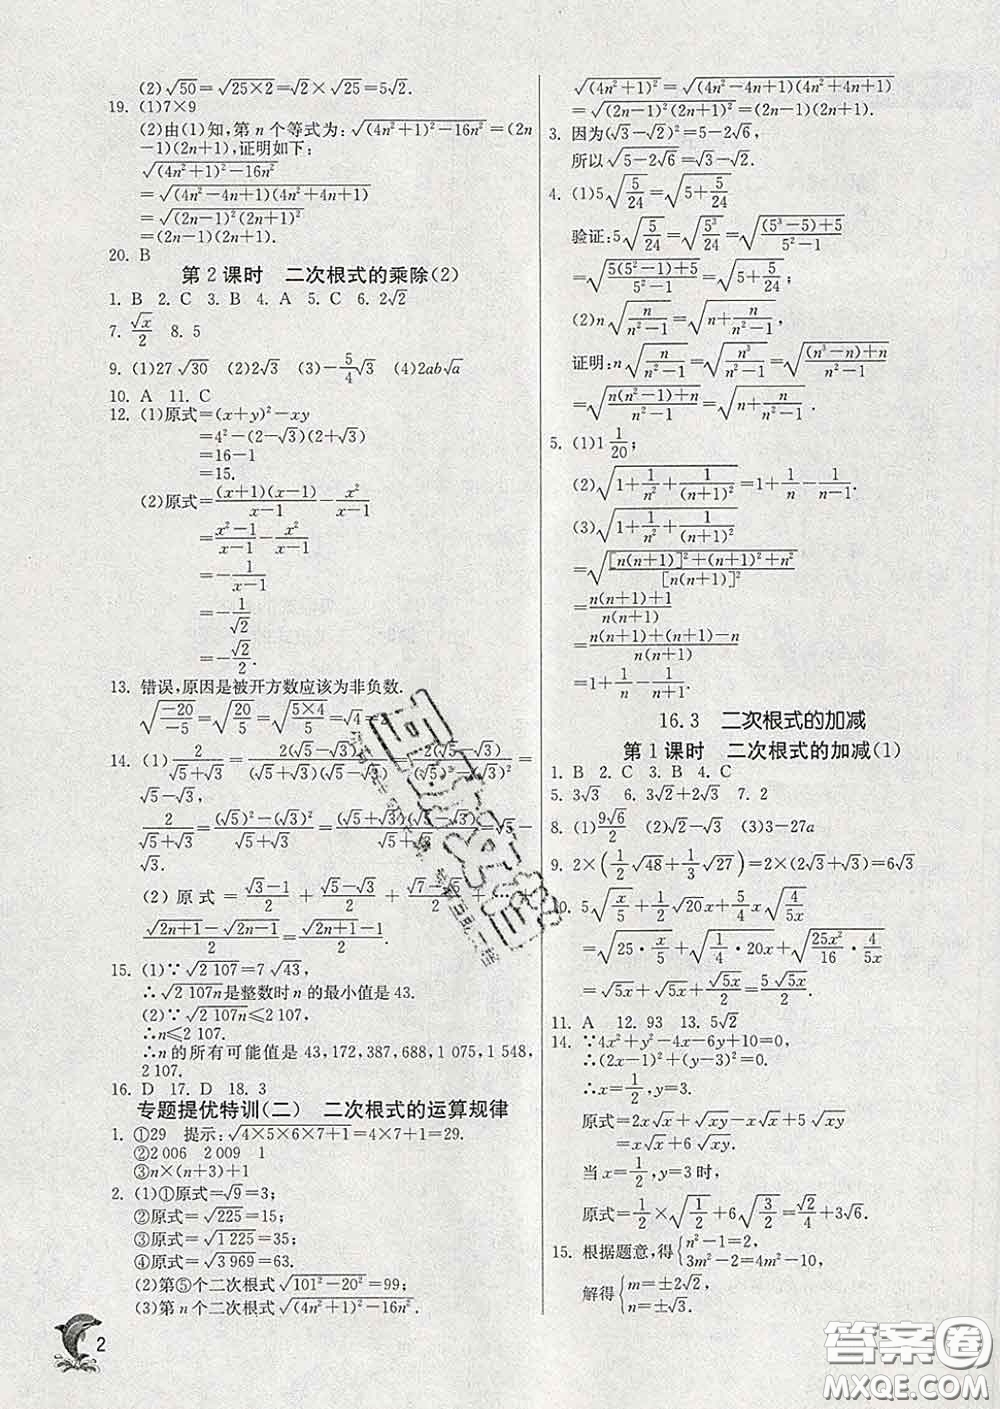 (2)√50=√(25×2)=√2×√25=5√2.
19. (1)7×9
(2)由(1)知,第n个等式为:√((4n²+1)²-16n²)=(2n
-1)(2n+1),证明如下:
√((4n²+1)²-16n²)
=√((4n²-4n+1)(4n²+4n+1))
=√((2n-1)²(2n+1)²)
=(2n-1)(2n+1).
20. B
第2课时 二次根式的乘除(2)
1. B 2. C 3. B 4. A 5. C 6. 2√2
7. √x/2 8. 5
9. (1)27√30 (2)2√3 (3)-5/4√3 (4)2ab√a
10. A 11. C
12. (1)原式=(x+y)²-xy
=4²-(2-√3)(2+√3)
=16-1
=15.
(2)原式=(x+1)(x-1)/(x-1)-x²/(x-1)
=(x²-1)/(x-1)-x²/(x-1)
=-1/(x-1)
=-1/√2
=-√2/2.
13. 错误,原因是被开方数应该为非负数.
√(-20/-5)=√(20/5)=√((5×4)/5)=√4=2
14. (1)2/(√5+√3)=2(√5-√3)/((√5+√3)(√5-√3))=2(√5-√3)/((√5)²-(√3)²)=
√5-√3,
2/(√5+√3)=((√5)²-(√3)²)/(√5+√3)=(√5+√3)(√5-√3)/(√5+√3)=√5-
√3.
(2)原式=(√3-1)/2+(√5-√3)/2+(√7-√5)/2+
(√(2n+1)-√(2n-1))/2=(√(2n+1)-1)/2.
15. (1)∵√2 107=7√43,
∴√(2 107n)是整数时n的最小值是43.
(2)∵√(2 107n)≤2 107,
∴n≤2 107.
∴n的所有可能值是43,172,387,688,1 075,1 548,
2 107.
16. D 17. D 18. 3
专题提优特训(二) 二次根式的运算规律
1. ①29 提示:√(4×5×6×7+1)=4×7+1=29.
②2 006 2 009 1
③n×(n+3)+1
2. (1)①原式=√9=3;
②原式=√225=15;
③原式=√1 225=35;
④原式=√3 969=63.
(2)第⑤个二次根式√(101²-20²)=99;
(3)第n个二次根式√((4n²+1)²-16n²).
2
√((4n²+1)²-16n²)=√((4n²-4n+1)(4n²+4n+1))
=√((2n-1)²(2n+1)²)=(2n-1)(2n+1).
3. 因为(√3-√2)²=5-2√6,
所以√(5-2√6)=√3-√2.
4. (1)5√(5/24)=√(5+5/24)
验证:5√(5/24)=√(5³/24)=√(((5³-5)+5)/(5²-1))
=√((5(5²-1)+5)/(5²-1))=√(5+5/24);
(2)n√(n/(n²-1))=√(n+n/(n²-1)),
证明:n√(n/(n²-1))=√(n³/(n²-1))=√(((n³-n)+n)/(n²-1))
=√((n(n²-1)+n)/(n²-1))=√(n+n/(n²-1)).
5. (1)1 1/20;
(2)√(1+1/n²+1/(n+1)²)=1+1/n-1/(n-1).
(3)√(1+1/n²+1/(n+1)²)
=√(([n(n+1)]²+(n+1)²+n²)/[n(n+1)]²)
=(n(n+1)+1)/(n(n+1))
=(n(n+1)+(n+1)-n)/(n(n+1))
=1+1/n-1/(n+1).
16.3 二次根式的加减
第1课时 二次根式的加减(1)
1. B 2. C 3. B 4. C
5. 3√3 6. 3√2+2√3 7. 2
8. (1)9√6/2 (2)√2-√3 (3)3-27a
9. 2×(1/2√48+1/3√27)=2×(2√3+√3)=6√3
10. 5√(x/5)+1/2√(20x)+5/4x√(4/5x)
=√(25·x/5)+√(1/4·20x)+√(25x²/16·4/5x)
=√(5x)+√(5x)+√(5x)/2=5√(5x)/2.
11. A 12. 93 13. 5√2
14. ∵4x²+y²-4x-6y+10=0,
∴(2x-1)²+(y-3)²=0.
∴x=1/2,y=3.
原式=2x√x+√(xy)-x√x+5√(xy)
=x√x+6√(xy).
当x=1/2,y=3时,
原式=1/2×√(1/2)+6√(3/2)=√2/4+3√6.
15. 根据题意,得{n²-1=2,
3m²-2=4m²-10,
解得{m=±2√2,
n=±√3.
答案圈
MXQE.COM